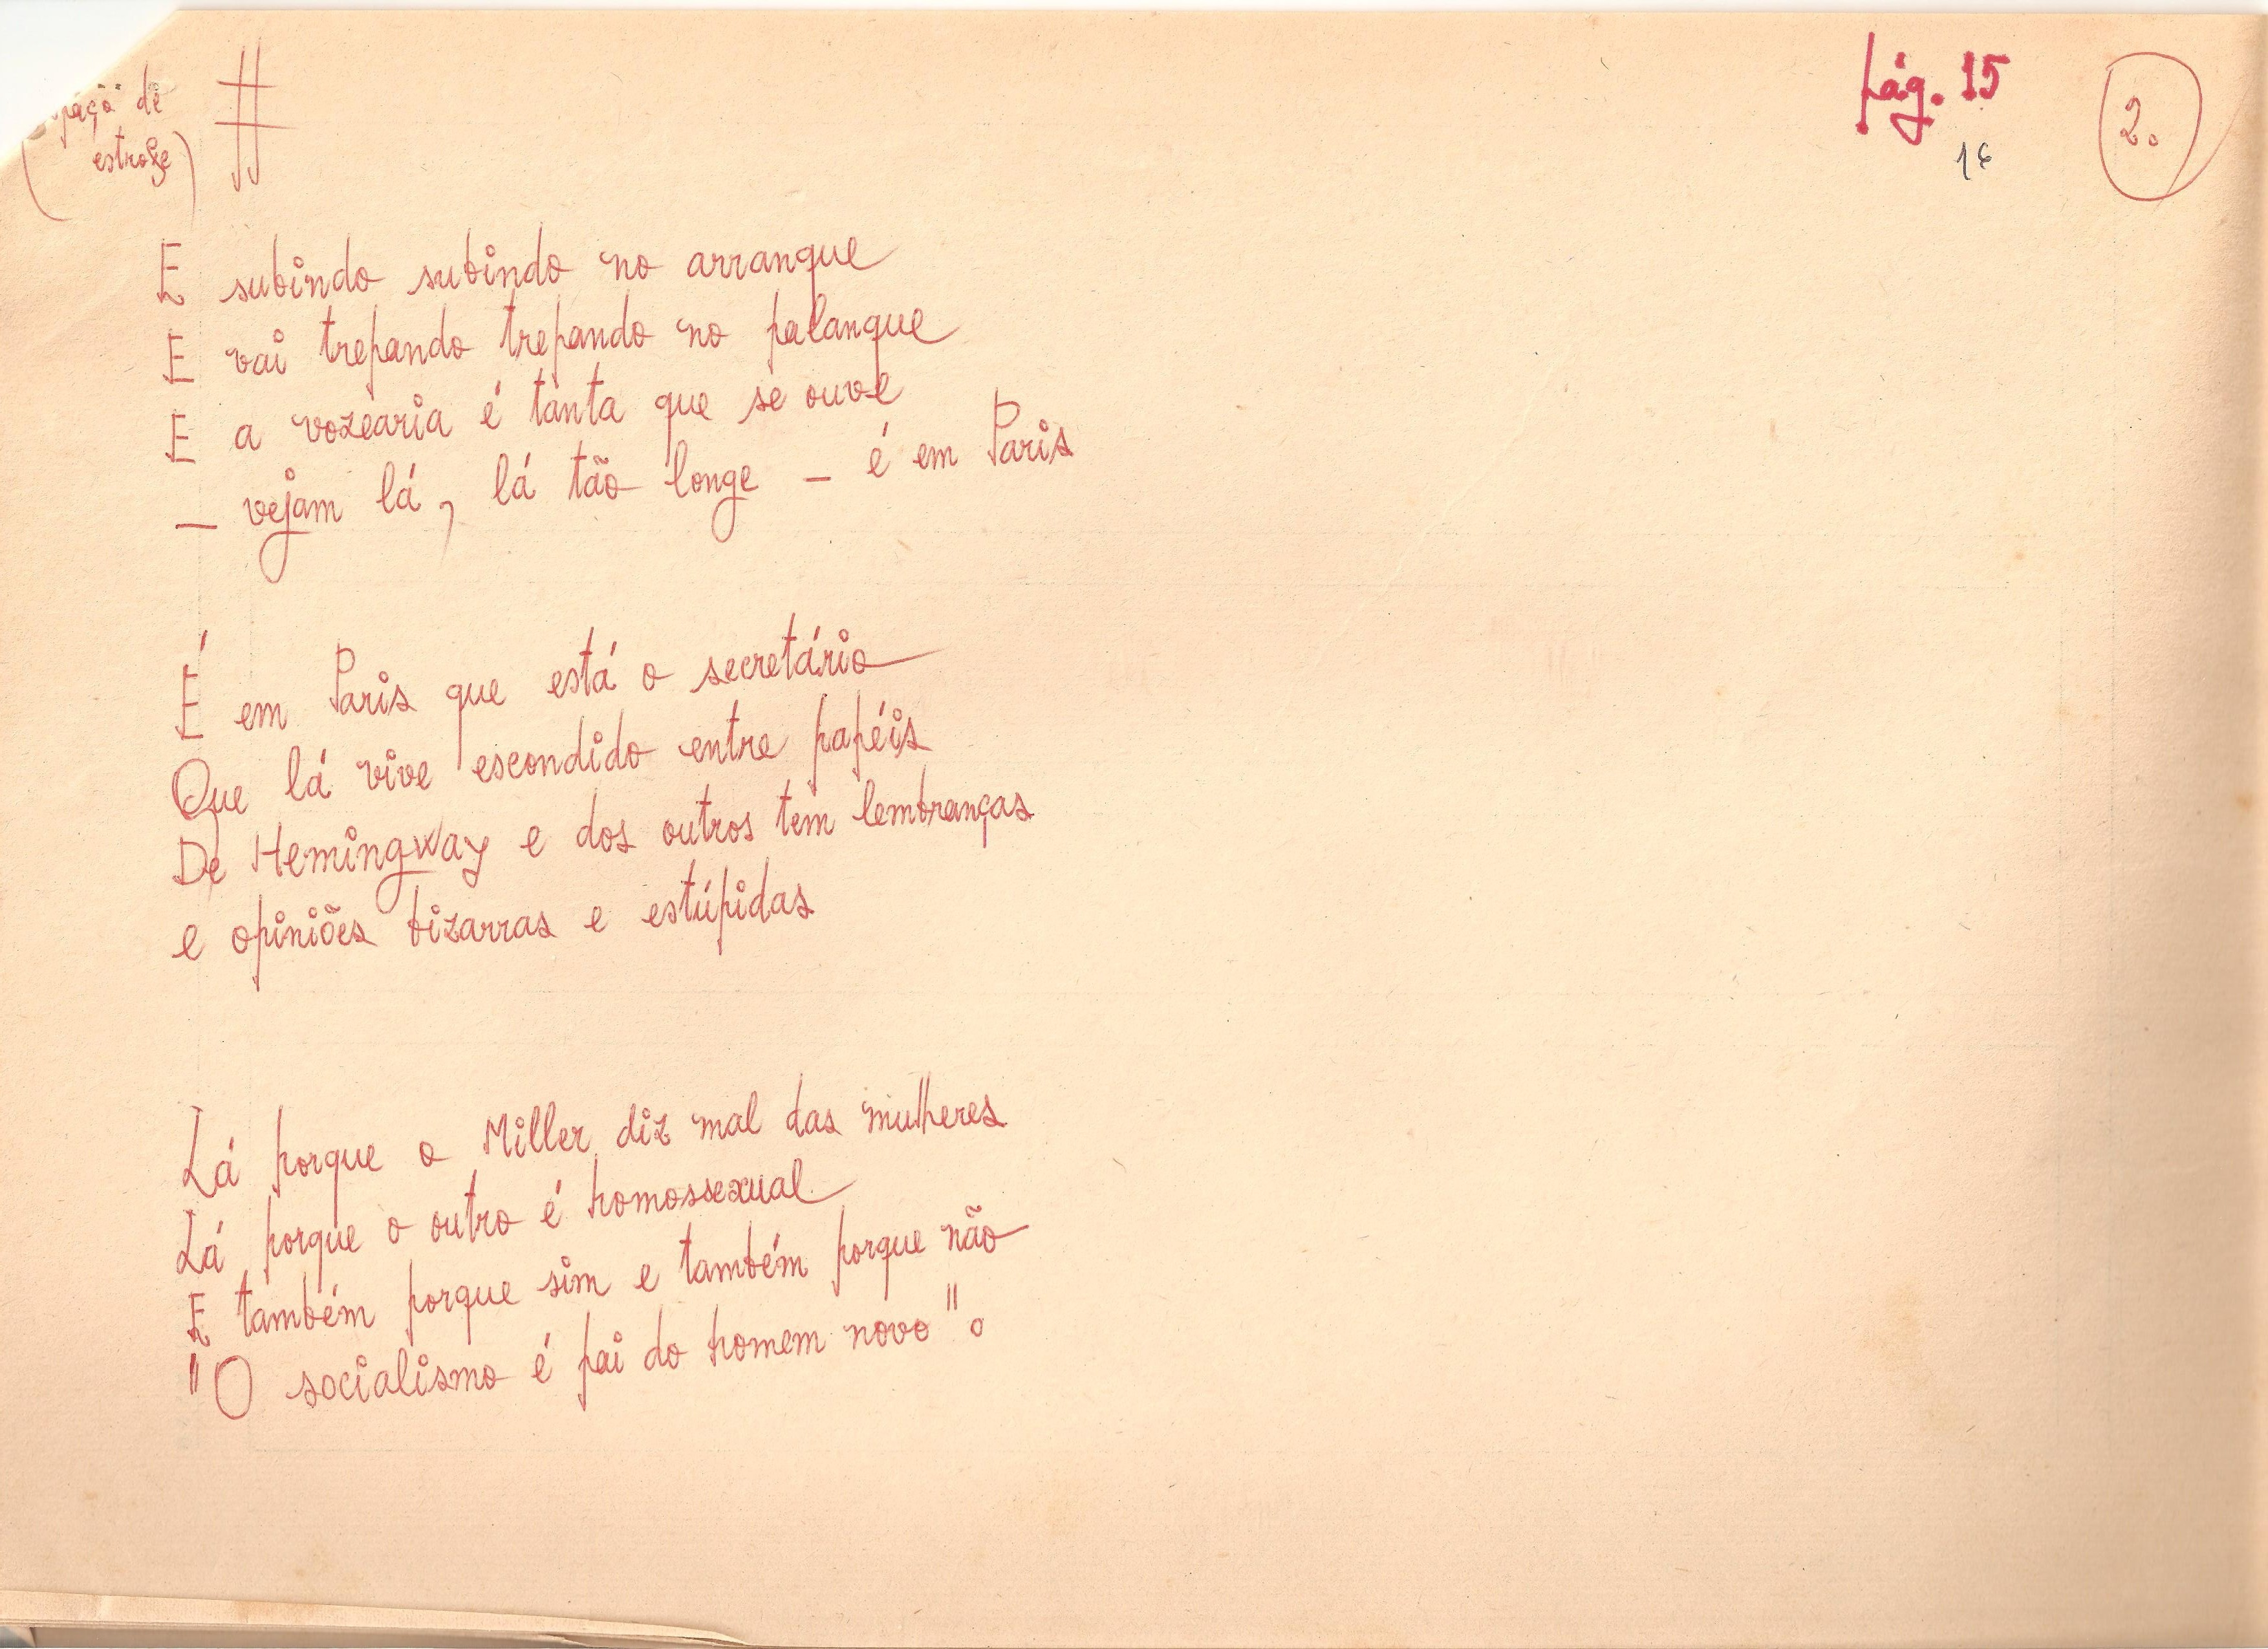 de
estrofe)
#
pág. 15
16
2.
E subindo subindo no arranque
E vai trepando trepando no palanque
E a vozearia é tanta que se ouve
— vejam lá, lá tão longe — é em Paris
É em Paris que está o secretário
Que lá vive escondido entre papéis
De Hemingway e dos outros tem lembranças
e opiniões bizarras e estúpidas
Lá porque o Miller diz mal das mulheres
Lá porque o outro é homossexual
E também porque sim e também porque não
"O socialismo é pai do homem novo".